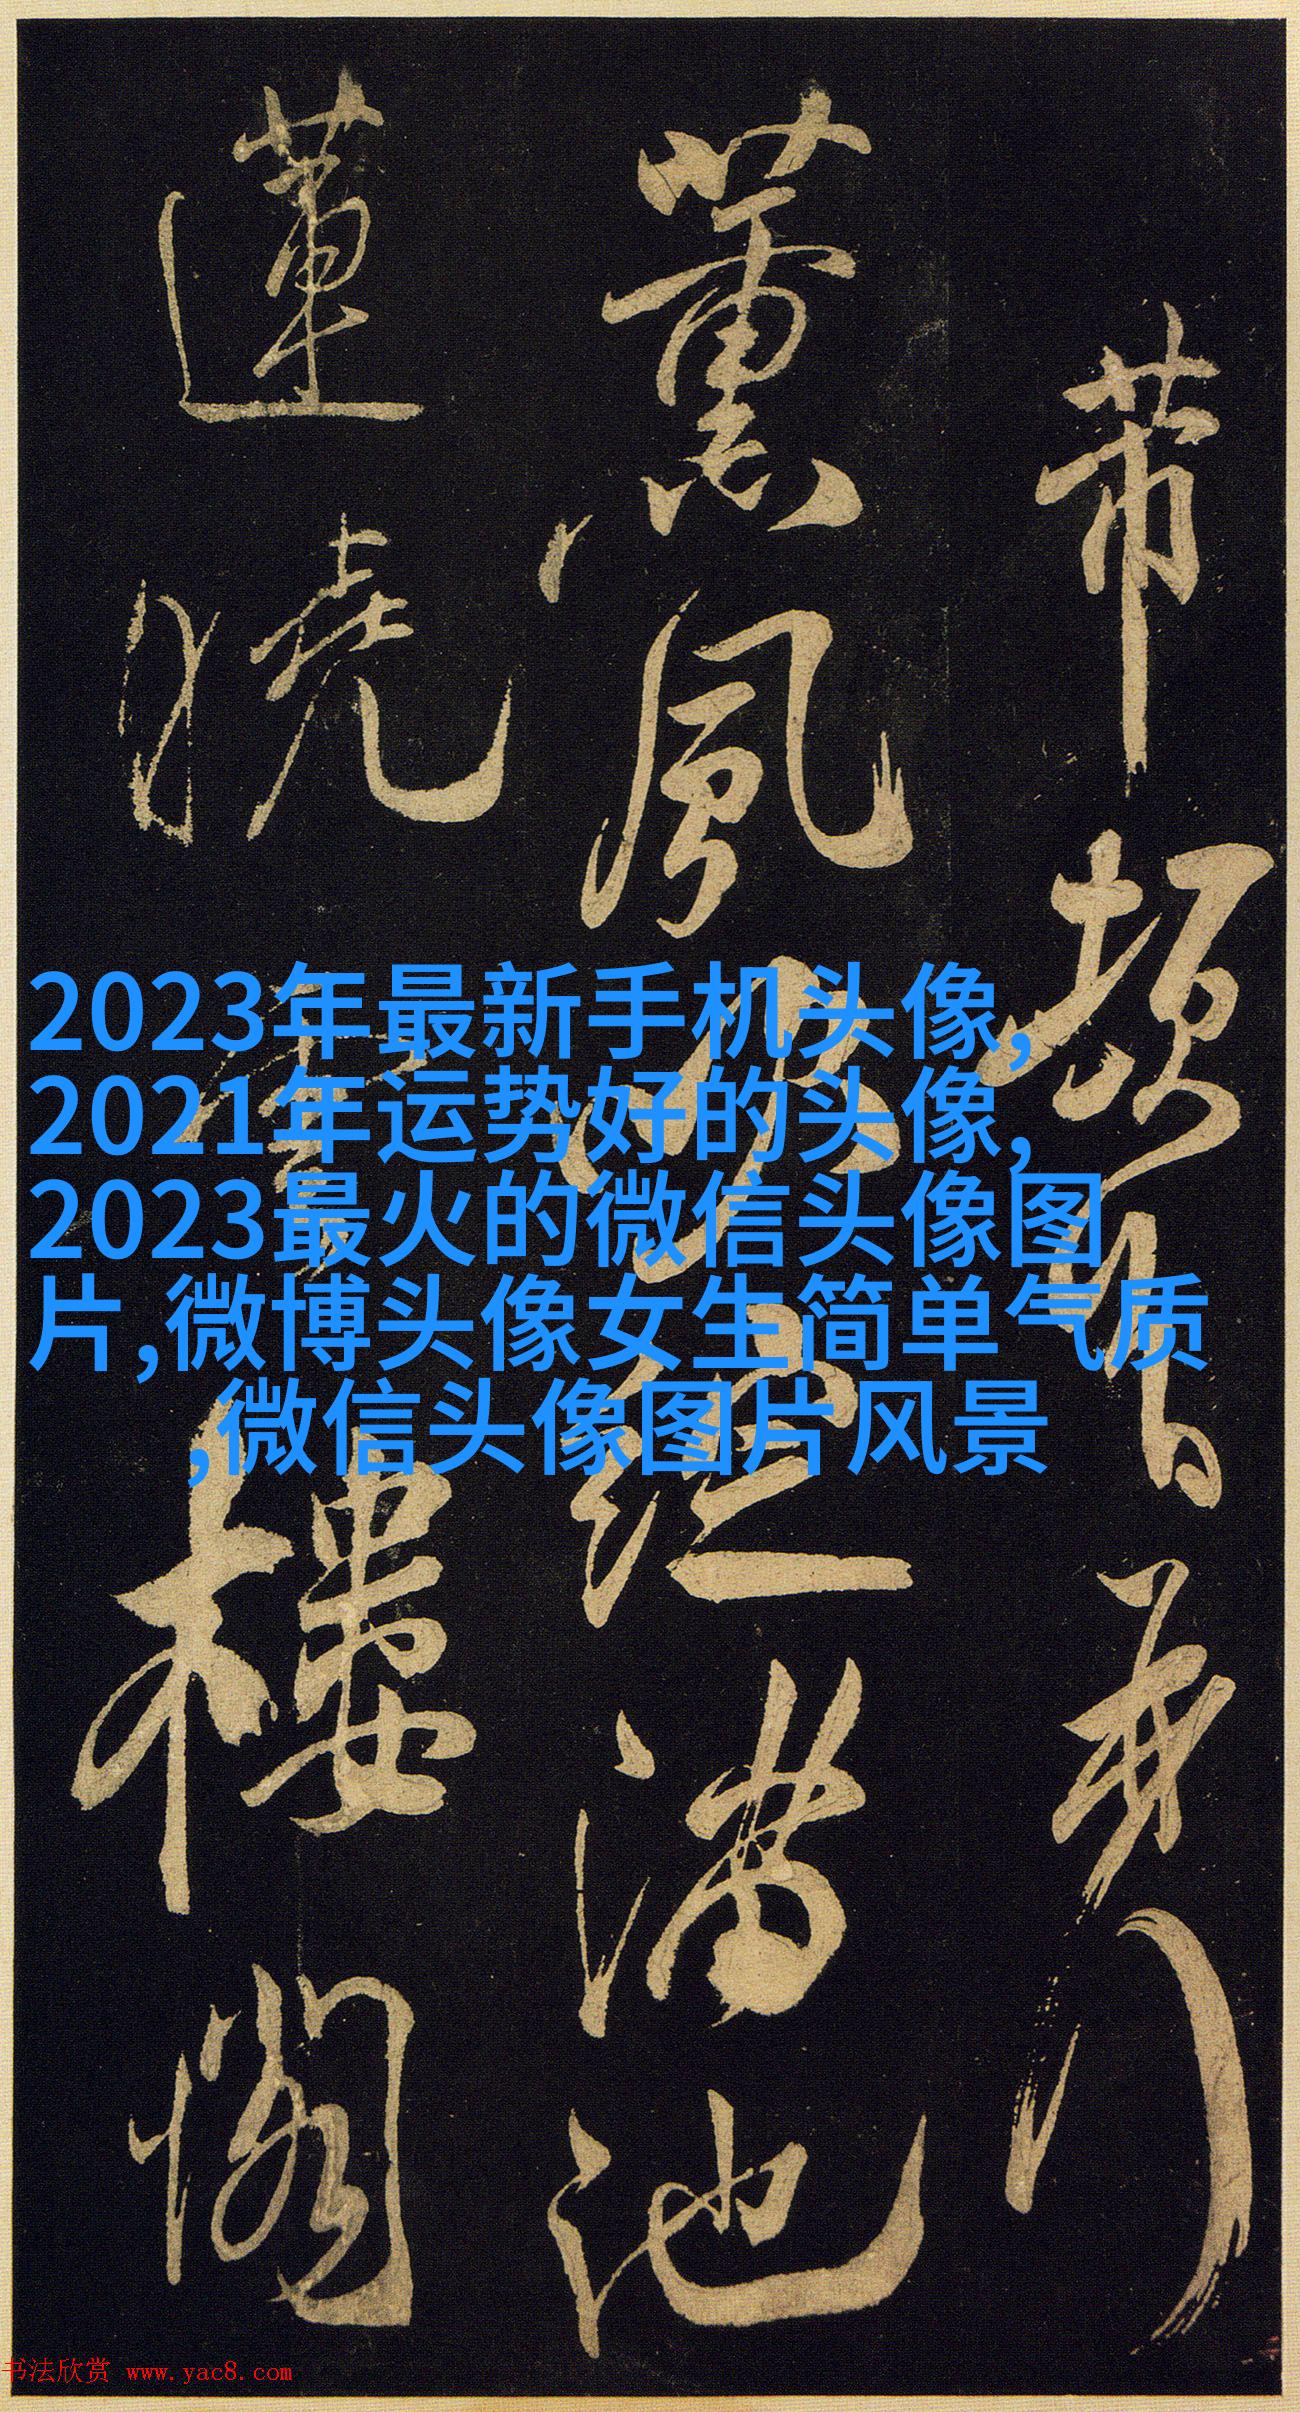 帶
薰風吹滿池
蓮曉雲樓閣
2023年最新手机头像,
2021年运势好的头像,
2023最火的微信头像图
片,微博头像女生简单气质
,微信头像图片风景
书法欣赏 www.yac8.com